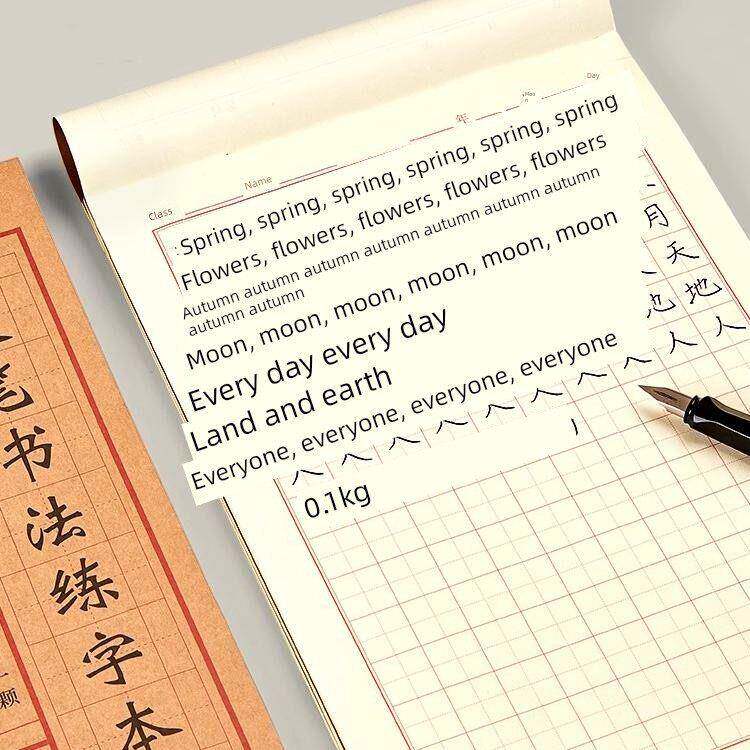 Class Name 年 Day
Spring, spring, spring, spring, spring, spring
Flowers, flowers, flowers, flowers, flowers
Autumn autumn autumn autumn autumn autumn autumn
autumn autumn
Moon, moon, moon, moon, moon, moon
月
Every day every day
天
Land and earth
地
Everyone, everyone, everyone, everyone
人 人
0.1kg
笔书法练字本
颗